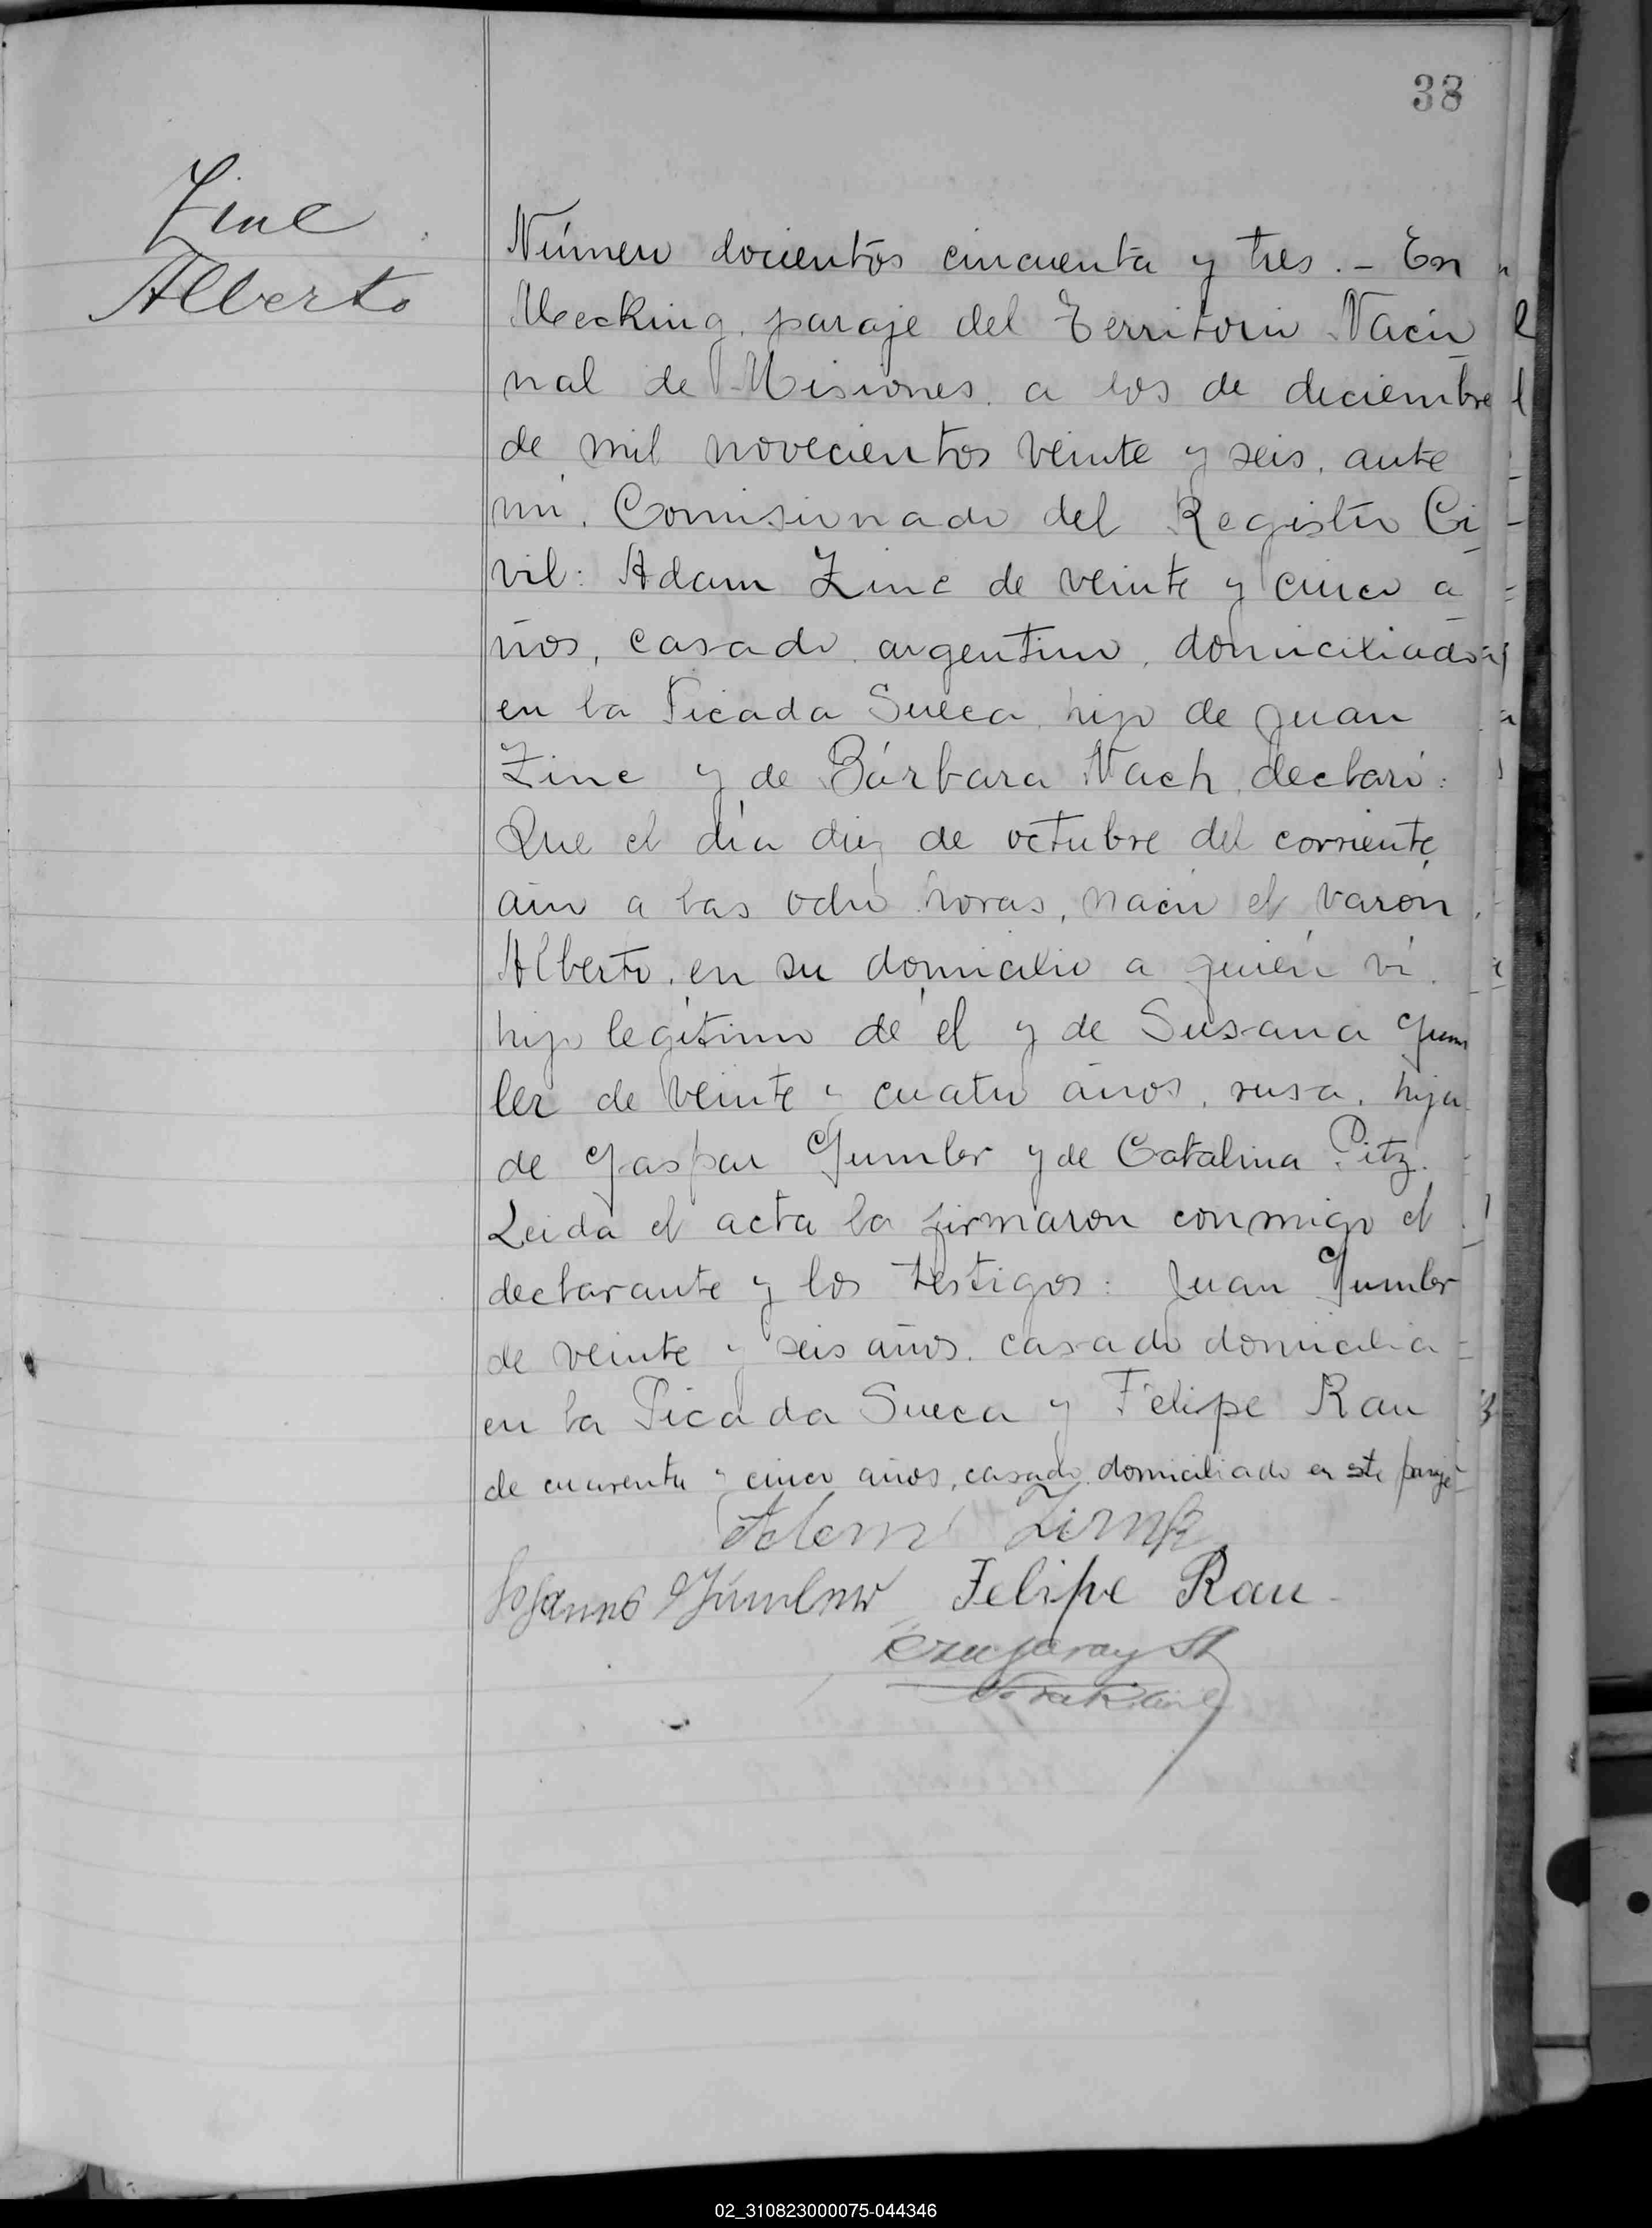 38
Zinc
Alberto
Número docientos cincuenta y tres. - En
Mecking, paraje del Territorio Nacio
nal de Misiones, a los de diciembre
de mil novecientos veinte y seis, ante
mi, Comisionado del Registro Ci
vil: Adam Zinc de veinte y cinco a
ños, casado, argentino, domiciliado
en la Picada Sueca, hijo de Juan
Zinc y de Bárbara Nach, declaró:
Que el día diez de octubre del corriente
año a las ocho horas, nació el varón
Alberto, en su domicilio a quién ví,
hijo legítimo de él y de Susana Gum
ler de veinte y cuatro años, rusa, hija
de Gaspar Gumler y de Catalina Pitz.
Leida el acta la firmaron conmigo el
declarante y los testigos: Juan Gumler
de veinte y seis años, casado domicilia
en la Picada Sueca y Felipe Rau
de cuarenta y cinco años, casado, domiciliado en este paraje
Adam
Felipe Rau